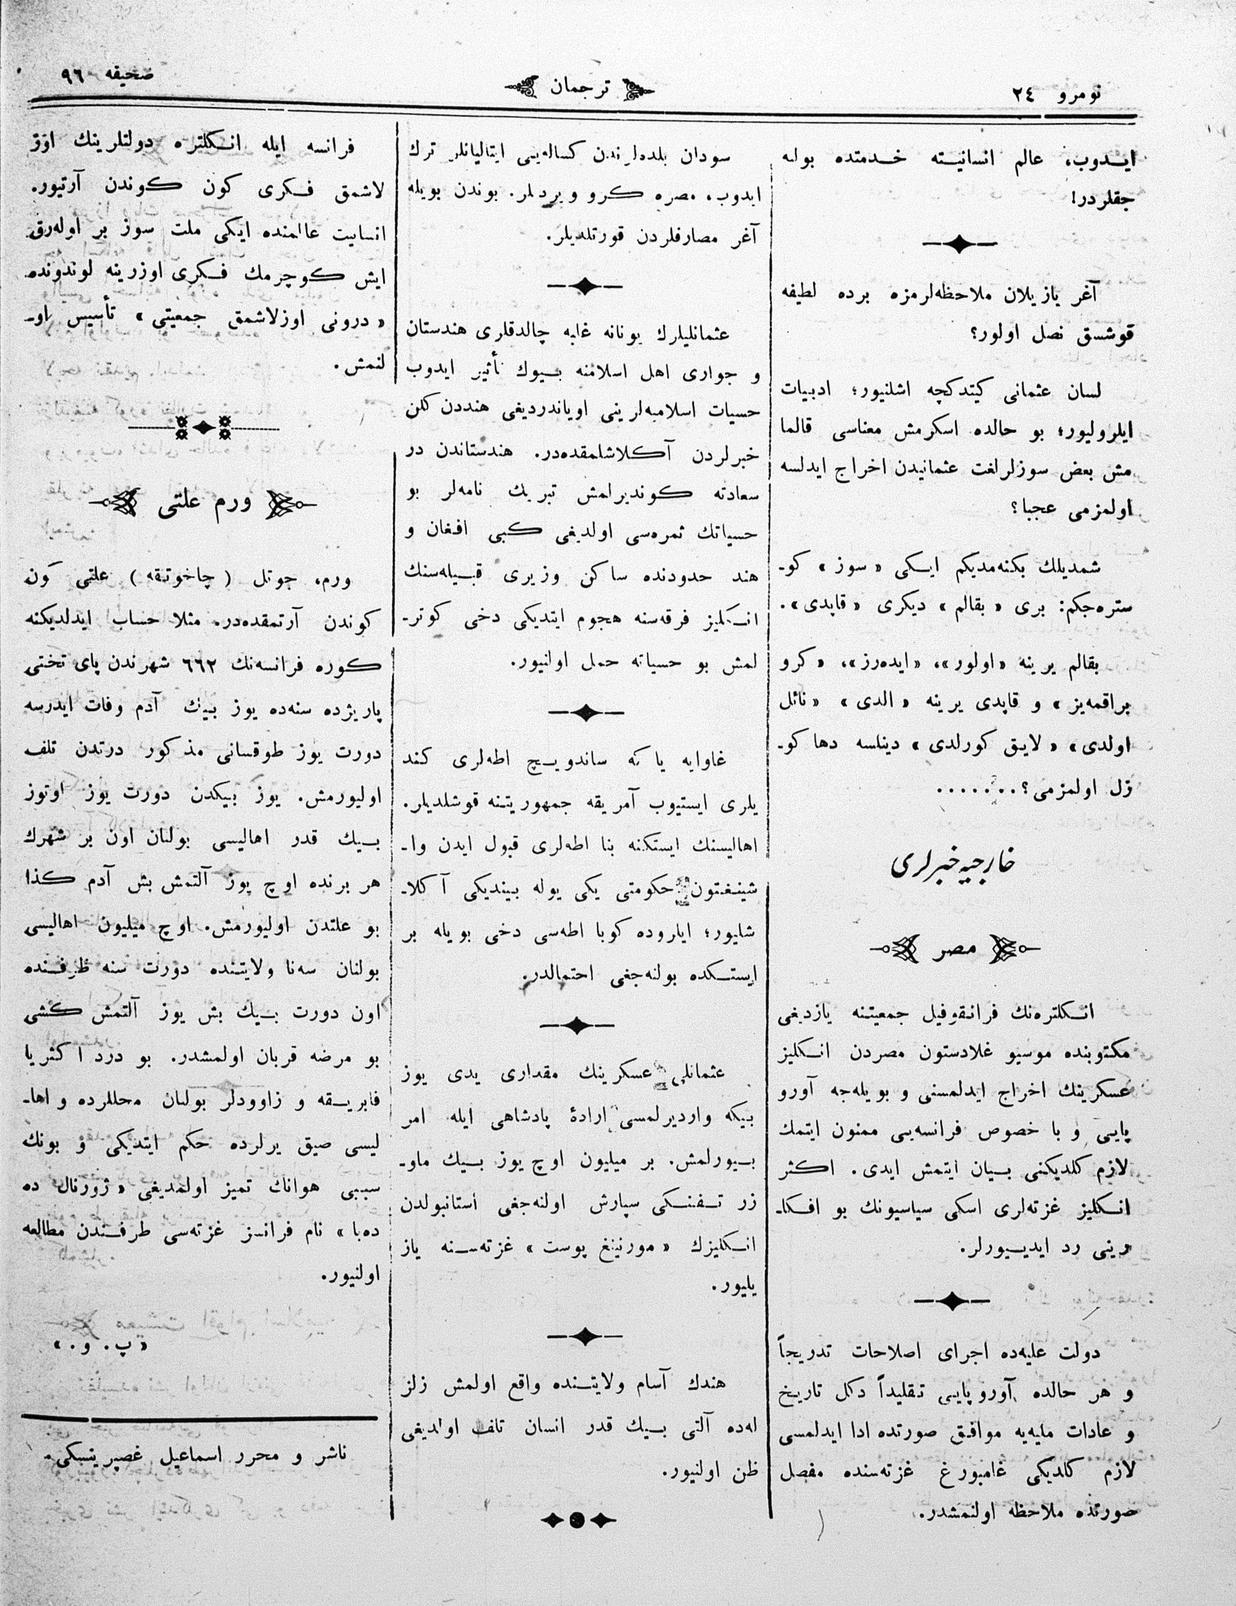 نومرو ٢٤
ترجمان
صحیفه ٩٦
ایدوب، عالم انسانیته خدمتده بولنه
جقلردر!
آغر یازیلان ملاحظه‌لرمزه برده لطیفه
قوشسق نصل اولور؟
لسان عثمانی کیتدکچه اشلنیور؛ ادبیات
ایلرولیور؛ بو حالده اسکرمش معناسی قالما
مش بعض سوزلرلغت عثمانیدن اخراج ایدلسه
اولمزمی عجبا؟
شمدیلك بکنه‌مدیکم ایکی «سوز» کو-
ستره‌جکم: بری «بقالم» دیکری «قاپدی».
بقالم یرینه «اولور»، «ایده‌رز»، «کرو
براقمه‌یز» و قاپدی یرینه «الدی» «نائل
اولدی» «لایق کورلدی» دینلسه دها کو-
زل اولمزمی؟......
خارجیه خبرلری
مصر
انکلتره‌نك فرانقوفیل جمعیتنه یازدیغی
مکتوبنده موسیو غلادستون مصردن انکلیز
عسکرینك اخراج ایدلمسنی و بویله‌جه آورو
پایی و با خصوص فرانسه‌یی ممنون ایتمك
لازم کلدیکنی بیان ایتمش ایدی. اکثر
انکلیز غزته‌لری اسکی سیاسیونك بو افکا-
رینی رد ایدیورلر.
دولت علیه‌ده اجرای اصلاحات تدریجاً
و هر حالده آوروپایی تقلیداً دکل تاریخ
و عادات ملیه‌یه موافق صورتده ادا ایدلمسی
لازم کلدیکی غامبورغ غزته‌سنده مفصل
صورتده ملاحظه اولنمشدر.
سودان بلده‌لرندن کساله‌یی ایتالیانلر ترك
ایدوب، مصره کرو ویردلر. بوندن بویله
آغر مصارفلردن قورتلدیلر.
عثمانلیلرك یونانه غلبه چالدقلری هندستان
و جواری اهل اسلامنه بیوك تأثیر ایدوب
حسیات اسلامیه‌لرینی اویاندردیغی هنددن کلن
خبرلردن آکلاشلمقده‌در. هندستاندن در
سعادته کوندیرلمش تبریك نامه‌لر بو
حسیاتك ثمره‌سی اولدیغی کبی افغان و
هند حدودنده ساکن وزیری قبیله‌سنك
انکلیز فرقه‌سنه هجوم ایتدیکی دخی کوتر-
لمش بو حسیاته حمل اولنیور.
غاوایه یا که ساندویچ اطه‌لری کند
یلری ایستیوب آمریقه جمهوریتنه قوشلدیلر.
اهالیسنك ایستکنه بنا اطه‌لری قبول ایدن وا-
شینغتون حکومتی یکی یوله بیندیکی آکلا-
شلیور؛ ایلروده کوبا اطه‌سی دخی بویله بر
ایستکده بولنه‌جغی احتمالدر.
عثمانلی عسکرینك مقداری یدی یوز
بیکه واردیرلمسی ارادۀ پادشاهی ایله امر
بیورلمش. بر میلیون اوچ یوز بیك ماو-
زر تفنکی سپارش اولنه‌جغی استانبولدن
انکلیزك «مورنینغ پوست» غزته‌سنه یاز
یلیور.
هندك آسام ولایتنده واقع اولمش زلز
له‌ده آلتی بیك قدر انسان تلف اولدیغی
ظن اولنیور.
فرانسه ایله انکلتره دولتلرینك اوز
لاشمق فکری کون کوندن آرتیور.
انسانیت عالمنده ایکی ملت سوز بر اوله‌رق
ایش کوچرمك فکری اوزرینه لوندونده
«درونی اوزلاشمق جمعیتی» تأسیس او-
لنمش.
ورم علتی
ورم، جوتل (چاخوتیقه) علتی کون
کوندن آرتمقده‌در. مثلا حساب ایدلدیکنه
کوره فرانسه‌نك ٦٦٢ شهرندن پای تختی
پاریژده سنه‌ده یوز بیك آدم وفات ایدرسه
دورت یوز طوقسانی مذکور درتدن تلف
اولیورمش. یوز بیکدن دورت یوز اوتوز
بیك قدر اهالیسی بولنان اون بر شهرك
هر برنده اوچ یوز آلتمش بش آدم کذا
بو علتدن اولیورمش. اوچ میلیون اهالیسی
بولنان سه‌نا ولایتنده دورت سنه ظرفنده
اون دورت بیك بش یوز آلتمش کشی
بو مرضه قربان اولمشدر. بو درد اکثریا
فابریقه و زاوودلر بولنان محللرده و اها-
لیسی صیق یرلرده حکم ایتدیکی و بونك
سببی هوانك تمیز اولمدیغی «ژورنال ده
ده‌با» نام فرانسز غزته‌سی طرفندن مطالعه
اولنیور.
«پ. و.»
ناشر و محرر اسماعیل غصپرینسکی.